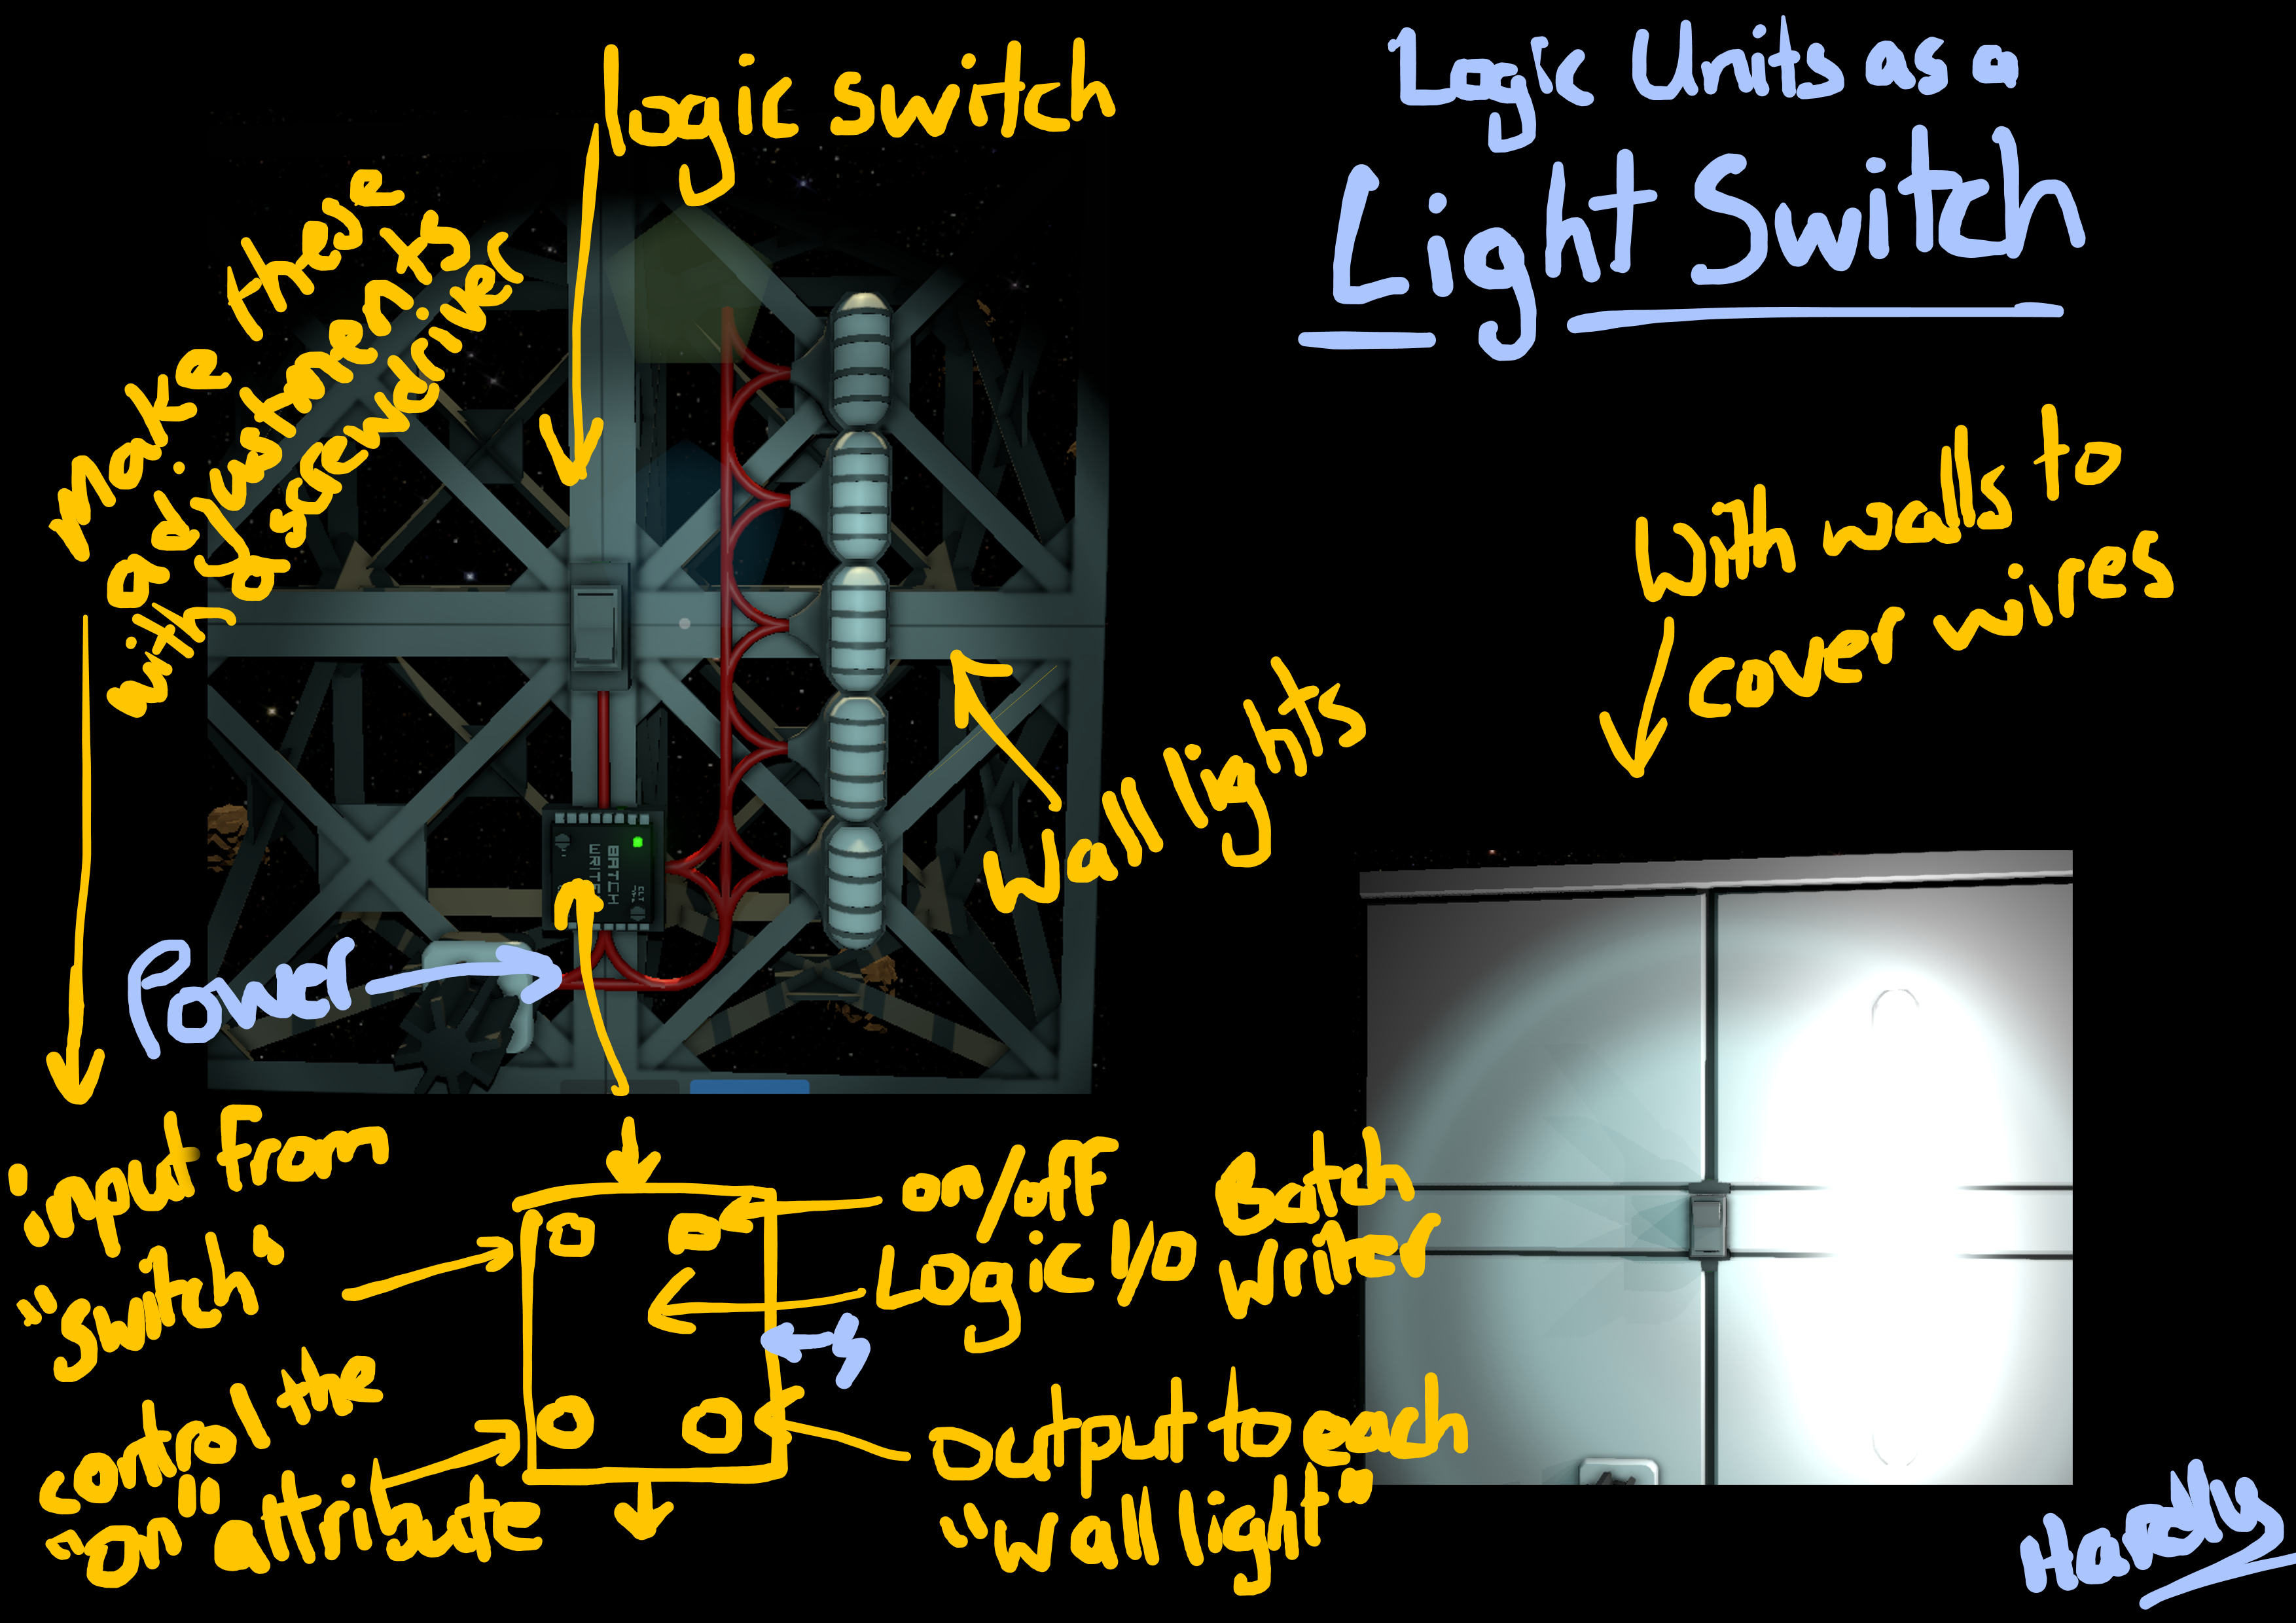 Logic Units as a
Light Switch
logic switch
make these
adjustments
with a screwdriver
With walls to
cover wires
Wall lights
BATCH
Power
input from
"switch"
control the
"on" attribute
on/off
Logic I/O Batch
Writer
output to each
"wall light"
Hardly